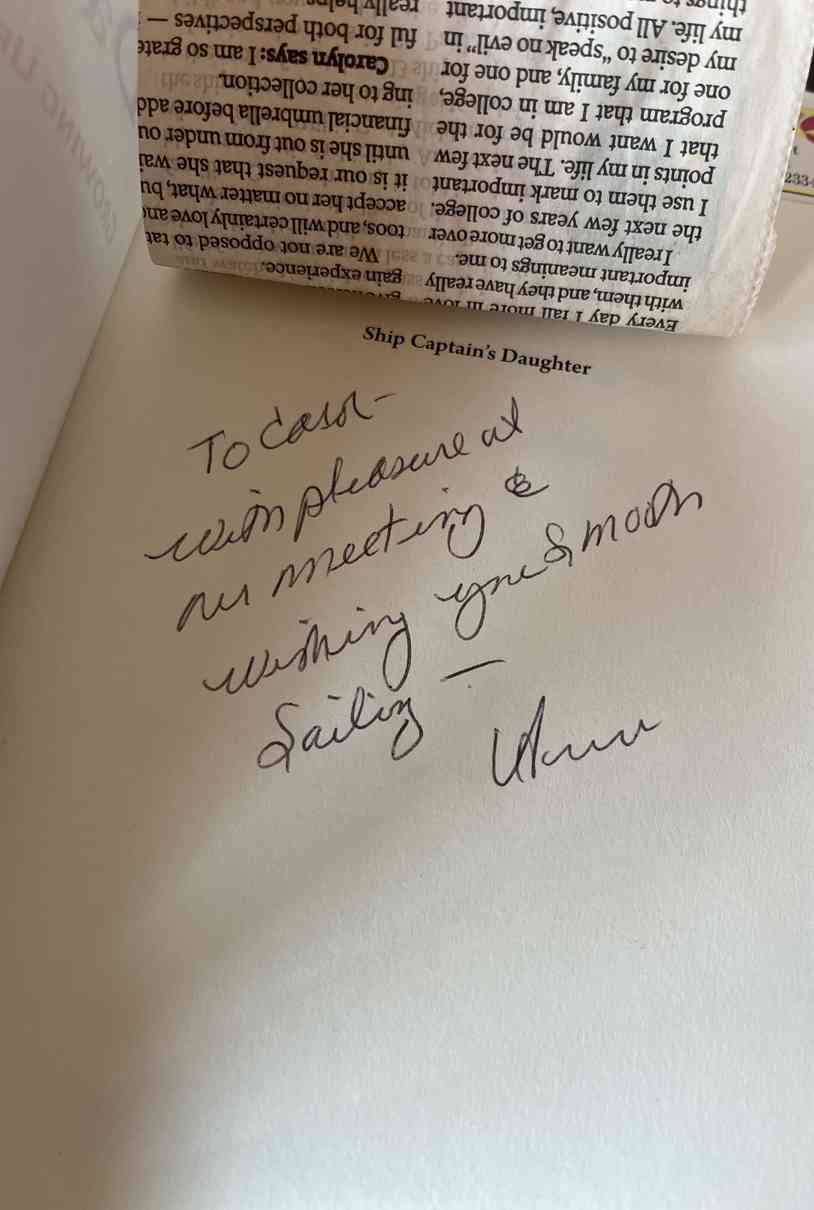 Every day I fall more in love
with them, and they have really
important meanings to me.
I really want to get more over
the next few years of college.
I use them to mark important
points in my life. The next few
that I want would be for the
program that I am in college,
one for my family, and one for
my desire to “speak no evil” in
my life. All positive, important
things
gain experience.
We are not opposed to tat
toos, and will certainly love and
accept her no matter what, bu
it is our request that she wai
until she is out from under ou
financial umbrella before add
ing to her collection.
Carolyn says: I am so grate
ful for both perspectives —
really helps
Ship Captain's Daughter
To Carol-
with pleasure at
our meeting &
wishing you smooth
Sailing —
233-